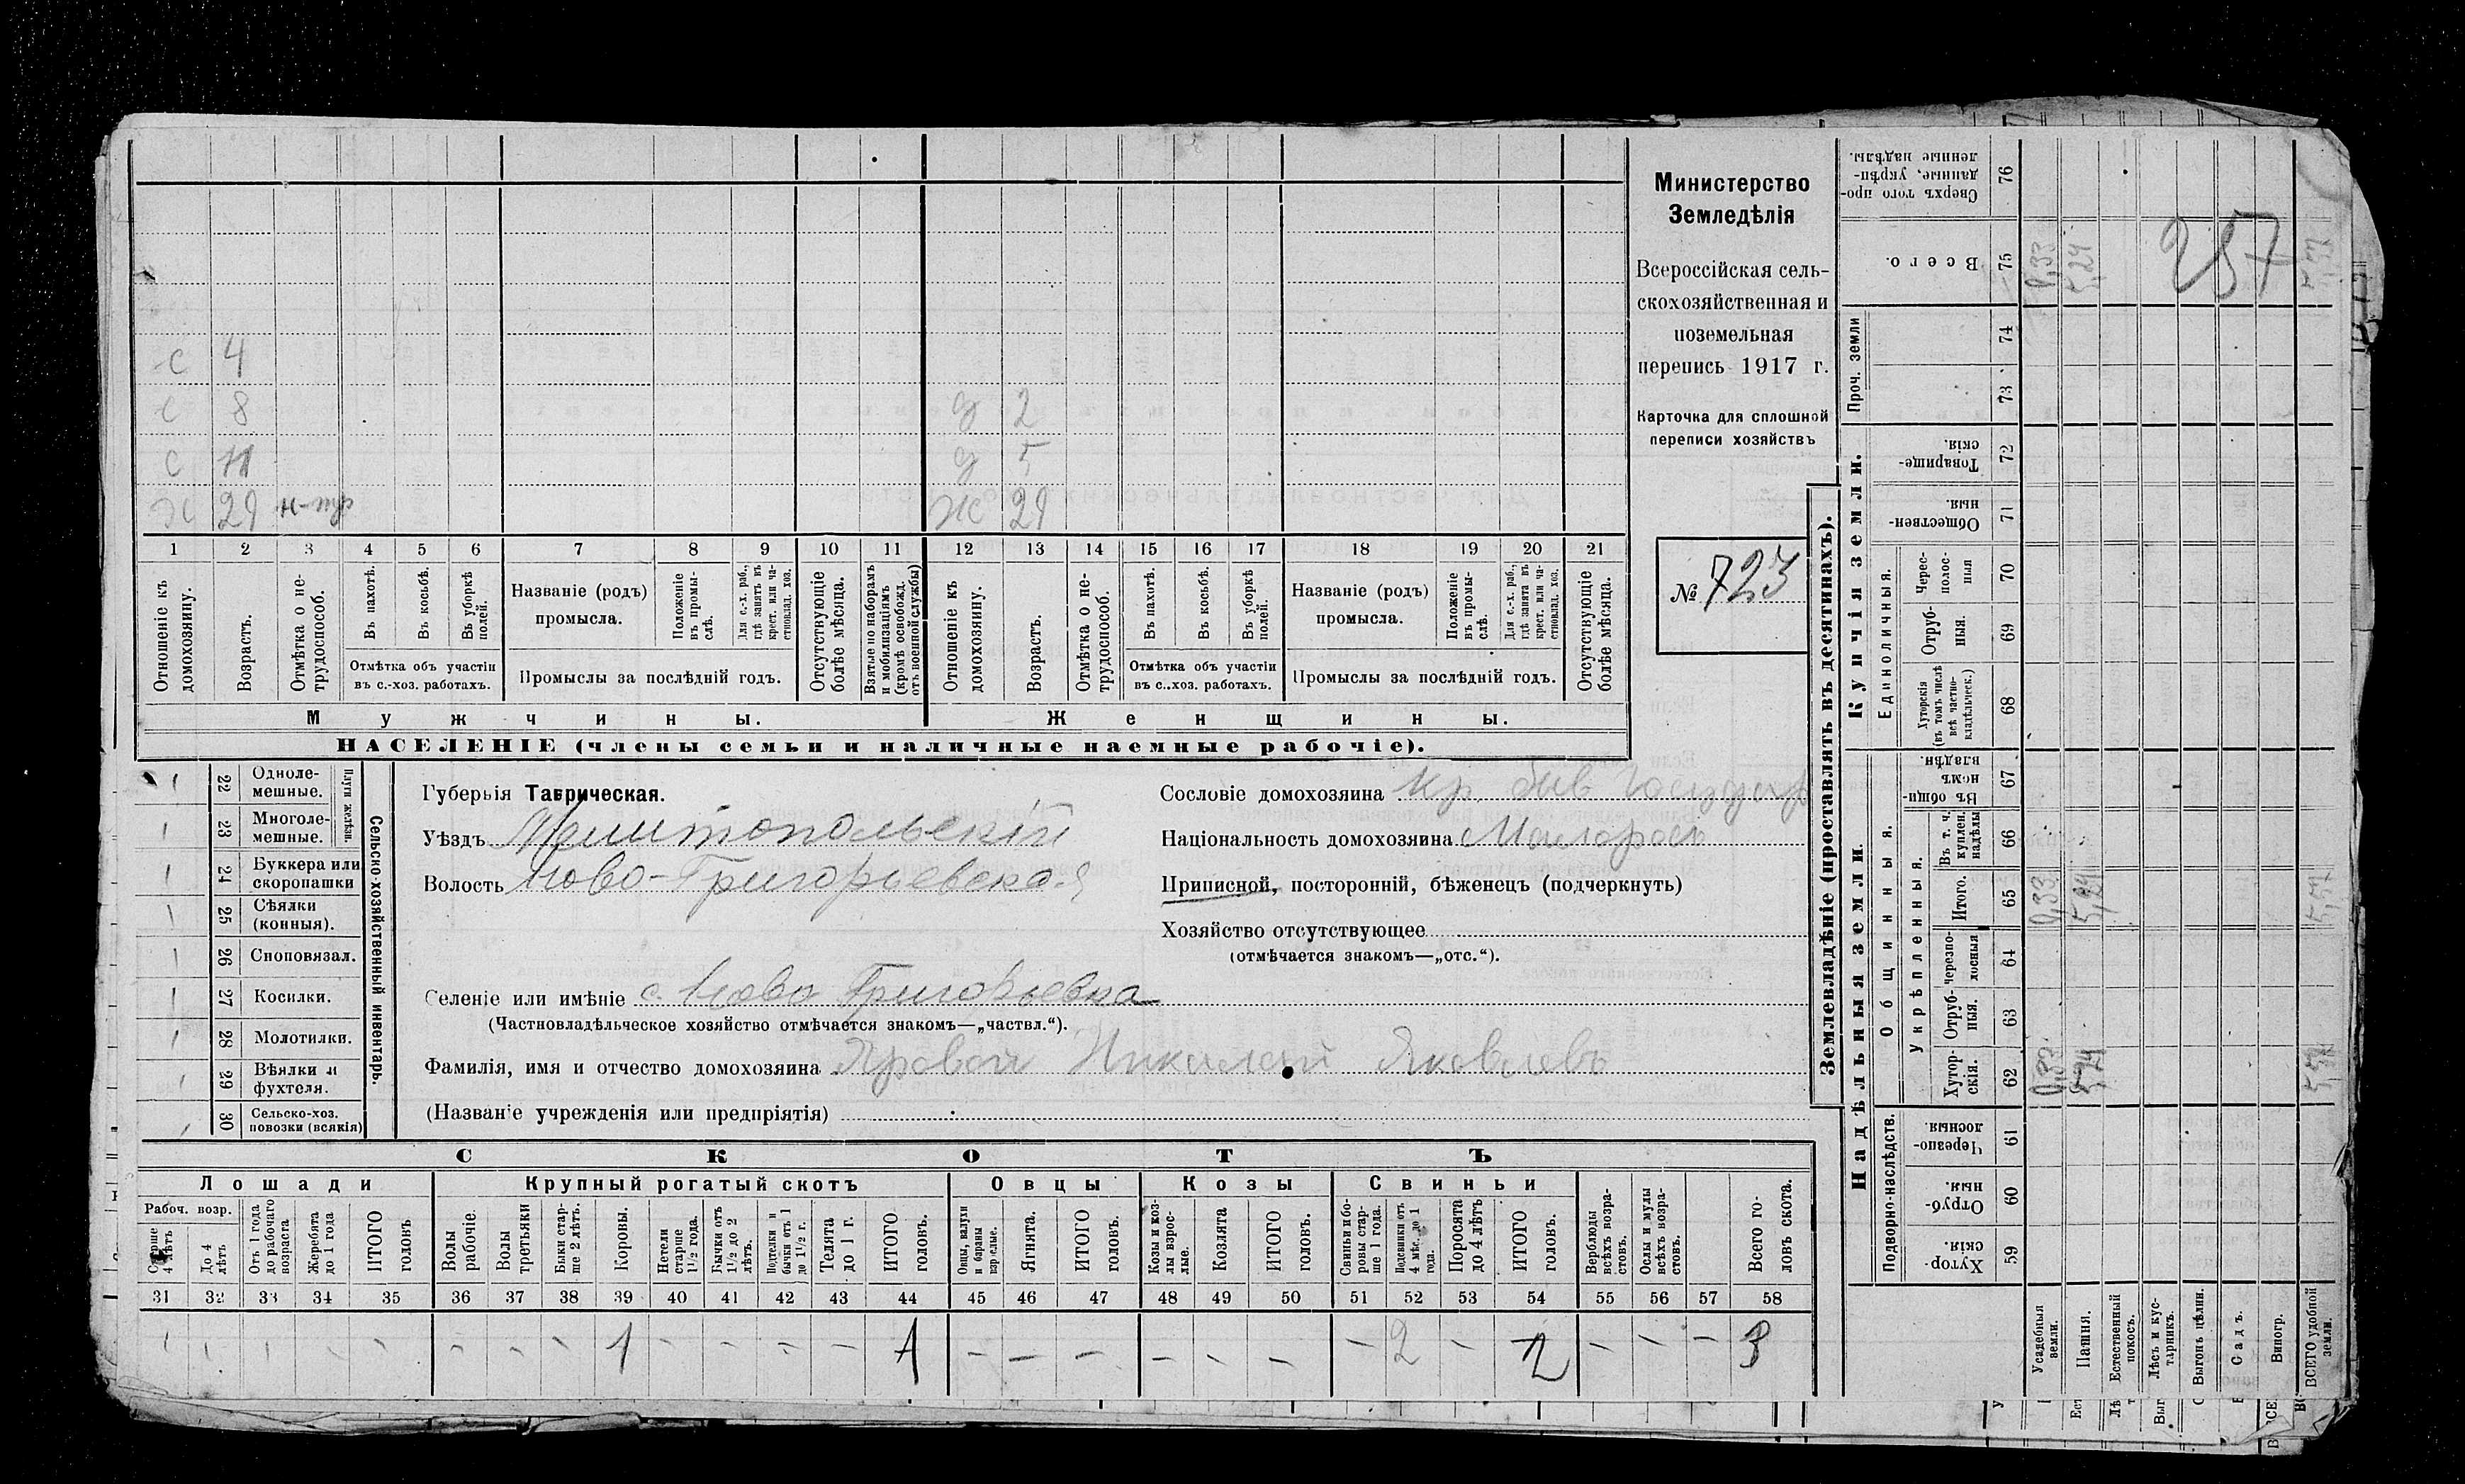 с 4
с 8 д 2
с 11 д 5
Х 29 Ж 29
1 2 3 4 5 6 7 8 9 10 11 12 13 14 15 16 17 18 19 20 21
Отношеніе къ домохозяину.
Возрастъ.
Отмѣтка о не-
трудоспособ.
Въ пахотѣ.
Въ косьбѣ.
Въ уборкѣ
полей.
Отмѣтка объ участіи
въ с.-хоз. работахъ.
Названіе (родъ)
промысла.
Положеніе
въ промы-
слѣ.
Для с.-х. раб.,
гдѣ занятъ въ
крест. или ча-
стновлад. хоз.
Промыслы за послѣдній годъ.
Отсутствующіе
болѣе мѣсяца.
Взятые по наборамъ
и мобилизаціямъ
(кромѣ освобожд.
отъ военной службы)
Отношеніе къ
домохозяину.
Возрастъ.
Отмѣтка о не-
трудоспособ.
Въ пахотѣ.
Въ косьбѣ.
Въ уборкѣ
полей.
Отмѣтка объ участіи
въ с..хоз. работахъ.
Названіе (родъ)
промысла.
Положеніе
въ промы-
слѣ.
Для с.-х. раб.,
гдѣ занята въ
крест. или ча-
стновлад. хоз.
Промыслы за послѣдній годъ.
Отсутствующіе
болѣе мѣсяца.
Мужчины.
Женщины.
НАСЕЛЕНІЕ (члены семьи и наличные наемные рабочіе).
Министерство
Земледѣлія
Всероссійская сель-
скохозяйственная и
поземельная
перепись 1917 г.
Карточка для сплошной
переписи хозяйствъ
№ 723
22 Одноле-
мешные.
23 Многоле-
мешные.
Плуги желѣзн.
24 Буккера или
скоропашки
25 Сѣялки
(конныя).
26 Сноповязал.
27 Косилки.
28 Молотилки.
29 Вѣялки и
фухтеля.
30 Сельско-хоз.
повозки (всякія)
Сельско-хозяйственный инвентарь.
Губернія Таврическая.
Уѣздъ Мелитопольскій
Волость Ново-Григорьевская
Селеніе или имѣніе с. Ново Григорьевка
(Частновладѣльческое хозяйство отмѣчается знакомъ—„частвл.“).
Фамилія, имя и отчество домохозяина Яровой Николай Яковлевъ
(Названіе учрежденія или предпріятія)
Сословіе домохозяина кр. быв Государ
Національность домохозяина Малоросъ
Приписной, посторонній, бѣженецъ (подчеркнуть)
Хозяйство отсутствующее
(отмѣчается знакомъ—„отс.“).
СКОТЪ
Лошади
Крупный рогатый скотъ
Овцы
Козы
Свиньи
Рабоч. возр.
Старше
4 лѣтъ
До 4
лѣтъ
Отъ 1 года
до рабочаго
возраста
Жеребята
до 1 года
ИТОГО
головъ
Волы
рабочіе.
Волы
третьяки
Быки стар-
ше 2 лѣтъ.
Коровы.
Нетели
старше
1½ года.
Бычки отъ
1½ до 2
лѣтъ.
Подтелки и
бычки отъ 1
до 1½ г.
Телята
до 1 г.
ИТОГО
головъ.
Овцы, валухи
и бараны
взрослые.
Ягнята.
ИТОГО
головъ.
Козы и коз-
лы взрос-
лые.
Козлята
ИТОГО
головъ.
Свиньи и бо-
ровы стар-
ше 1 года.
Подсвинки отъ
4 мѣс. до 1
года.
Поросята
до 4 лѣтъ
ИТОГО
головъ.
Верблюды
всѣхъ возра-
стовъ.
Ослы и мулы
всѣхъ возра-
стовъ.
Всего го-
ловъ скота.
31 32 33 34 35 36 37 38 39 40 41 42 43 44 45 46 47 48 49 50 51 52 53 54 55 56 57 58
1 1 – – – – – – – – – 2 – 2 – – – 3
Землевладѣніе (проставлять въ десятинахъ).
Купчія земли.
Надѣльныя земли.
Проч. земли
Единоличныя.
Общинныя.
Укрѣпленныя.
Подворно-наслѣдств.
Сверхъ того про-
данные, укрѣп-
ленные надѣлы.
76
Всего.
75 0,33 5,24 5,57
257
74
73
Товарище-
скія.
72
Обществен-
ныя
71
Черес-
полос-
ныя
70
Отруб-
ныя.
69
Хуторскія
(въ томъ числѣ
всѣ частно-
владѣльческ.)
68
Въ общи-
номъ
владѣн.
67
Въ т. ч.
куплен.
надѣлы
66
Итого.
65 0,33 5,24 5,57
Черезпо-
лосныя
64
Отруб-
ныя.
63
Хутор-
скія.
62 0,33 5,24 5,57
Черезпо-
лосныя.
61
Отруб-
ныя.
60
Хутор-
скія.
59
Усадебныя
земли.
Пашня.
Естественный
покосъ.
Лѣсъ и кус-
тарникъ.
Выгонъ цѣлин.
Садъ.
Виногр.
ВСЕГО удобной
земли.